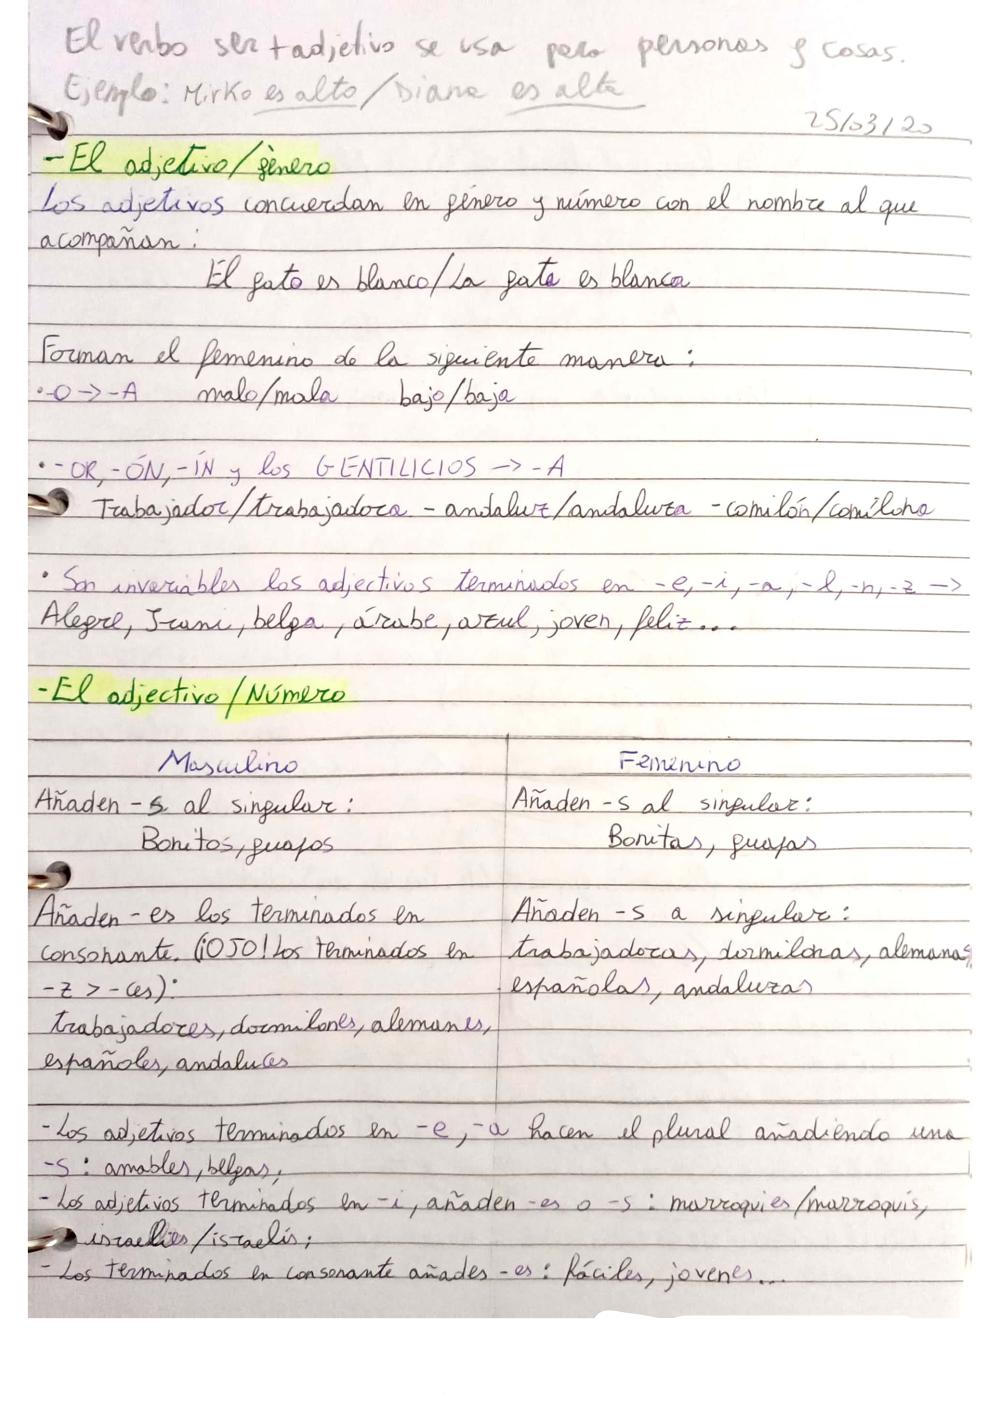 El verbo ser+adjetivo se usa para personas y cosas.
Ejemplo: Mirko es alto/Diana es alta
25/03/20
-El adjetivo/gènero
Los adjetivos concuerdan en género y número con el nombre al que
acompañan:
El gato es blanco/La gata es blanca
Forman el femenino de la siguiente manera:
•-O->-A malo/mala bajo/baja
•-OR,-ÓN,-ÍN y los GENTILICIOS -> -A
Trabajador/trabajadora - andaluz/andaluza - comilón/comilona
• Son invariables los adjectivos terminados en -e,-i,-a,-l,-n,-z ->
Alegre, Irani, belga, árabe, azul, joven, feliz...
-El adjectivo/Número
Masculino Femenino
Añaden -s al singular: Añaden -s al singular:
Bonitos, guapos Bonitas, guapas
Añaden -es los terminados en Añaden -s a singular:
consonante. (¡OJO! Los terminados en trabajadoras, dormilonas, alemanas,
-z > -ces): españolas, andaluzas
trabajadores, dormilones, alemanes,
españoles, andaluces
-Los adjetivos terminados en -e,-a hacen el plural añadiendo una
-s: amables, belgas;
-Los adjetivos terminados en -i, añaden -es o -s: marroquies/marroquís,
israelíes/israelís;
-Los terminados en consonante añades -es: fáciles, jovenes...